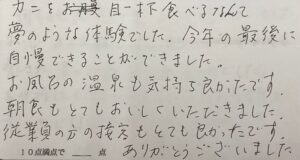 カニをお腹目一杯食べるなんて
夢のような体験でした。今年の最後に
自慢できることができました。
お風呂の温泉も気持ち良かったです。
朝食もとてもおいしくいただきました。
従業員の方の接客もとても良かったです。
10点満点で 点 ありがとうございました。